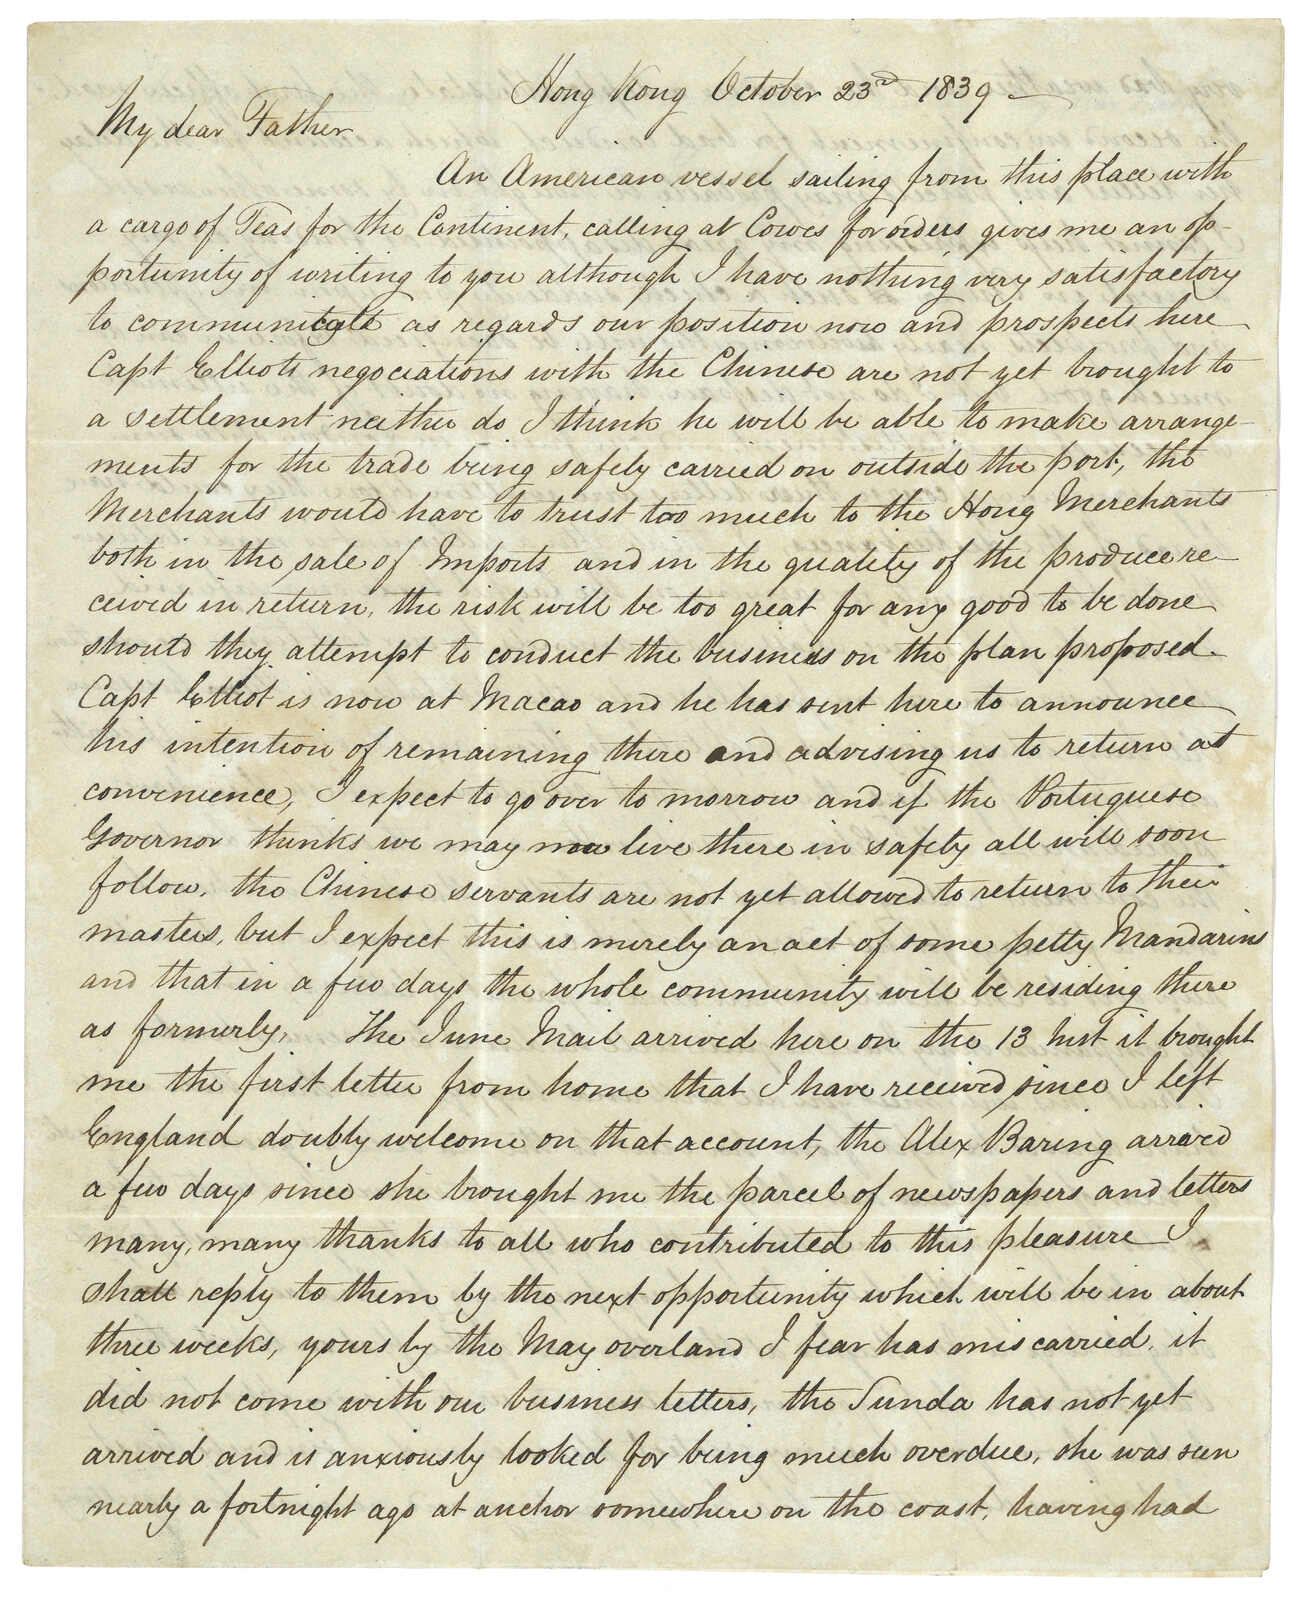 Hong Kong October 23rd 1839
My dear Father
An American vessel sailing from this place with
a cargo of Teas for the Continent, calling at Cowes for orders gives me an op-
portunity of writing to you although I have nothing very satisfactory
to communicate as regards our position now and prospects here
Capt Elliots negociations with the Chinese are not yet brought to
a settlement neither do I think he will be able to make arrange-
ments for the trade being safely carried on outside the port, the
Merchants would have to trust too much to the Hong Merchants
both in the sale of Imports and in the quality of the produce re-
ceived in return, the risk will be too great for any good to be done
should they attempt to conduct the business on the plan proposed.
Capt Elliot is now at Macao and he has sent here to announce
his intention of remaining there and advising us to return at
convenience, I expect to go over to morrow and if the Portuguese
Governor thinks we may live there in safety all will soon
follow, the Chinese servants are not yet allowed to return to their
masters, but I expect this is merely an act of some petty Mandarins
and that in a few days the whole community will be residing there
as formerly, The June Mail arrived here on the 13 Inst it brought
me the first letter from home that I have received since I left
England doubly welcome on that account, the Alex Baring arrived
a few days since she brought me the parcel of newspapers and letters
many, many thanks to all who contributed to this pleasure I
shall reply to them by the next opportunity which will be in about
three weeks, yours by the May overland I fear has miscarried, it
did not come with our business letters, the Sunda has not yet
arrived and is anxiously looked for being much overdue, she was seen
nearly a fortnight ago at anchor somewhere on the coast, having had